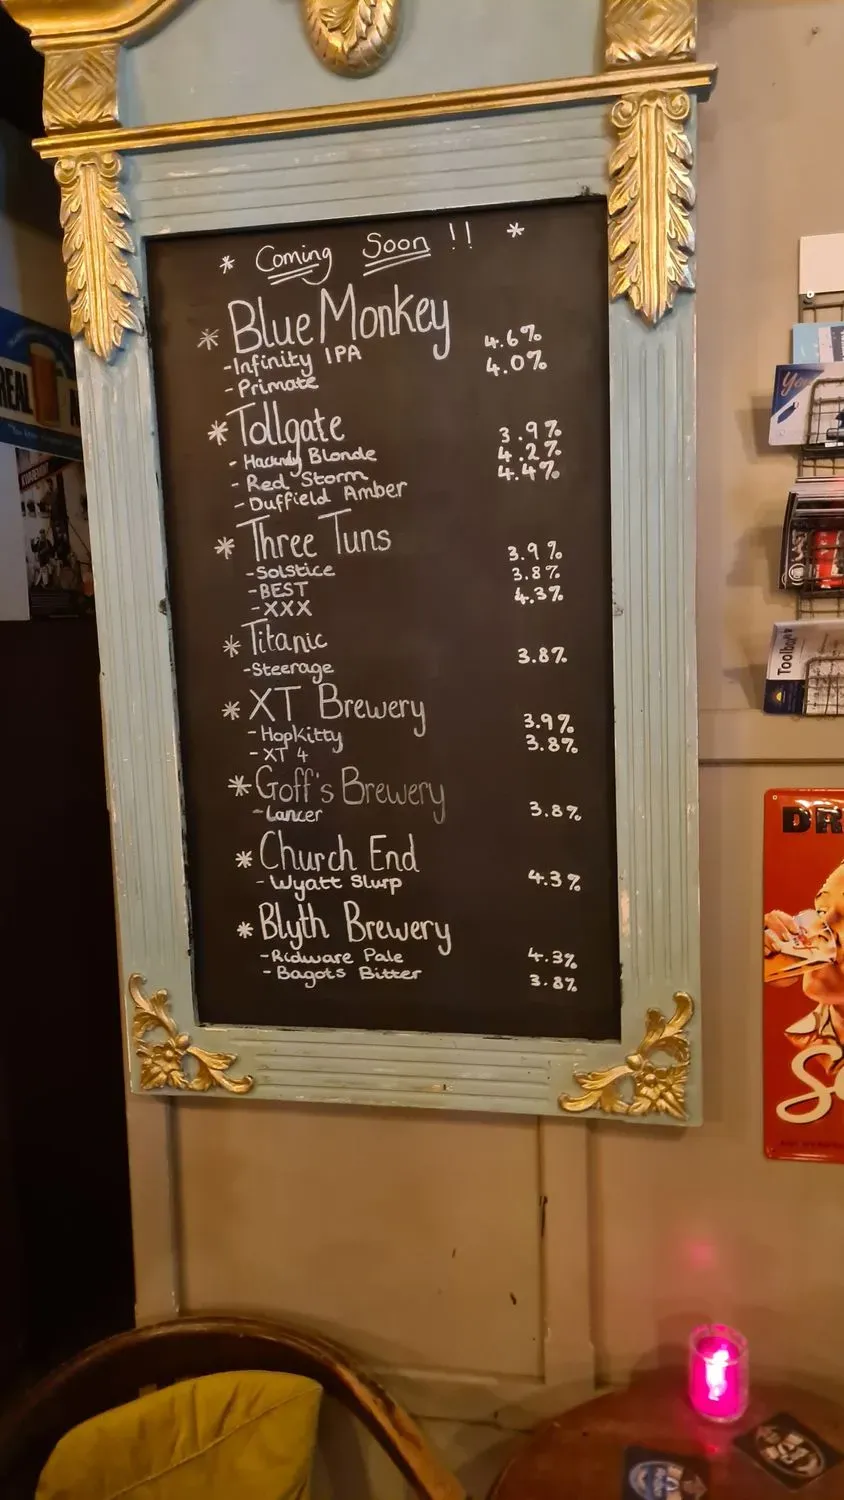 * Coming Soon !! *
* Blue Monkey
- Infinity IPA 4.6%
- Primate 4.0%
* Tollgate
- Hackney Blonde 3.9%
- Red Storm 4.2%
- Duffield Amber 4.4%
* Three Tuns
- Solstice 3.9%
- BEST 3.8%
- XXX 4.3%
* Titanic
- Steerage 3.8%
* XT Brewery
- Hopkitty 3.9%
- XT 4 3.8%
* Goff's Brewery
- Lancer 3.8%
* Church End
- Wyatt Slurp 4.3%
* Blyth Brewery
- Ridware Pale 4.3%
- Bagots Bitter 3.8%
REAL
Toolbox
DR
S